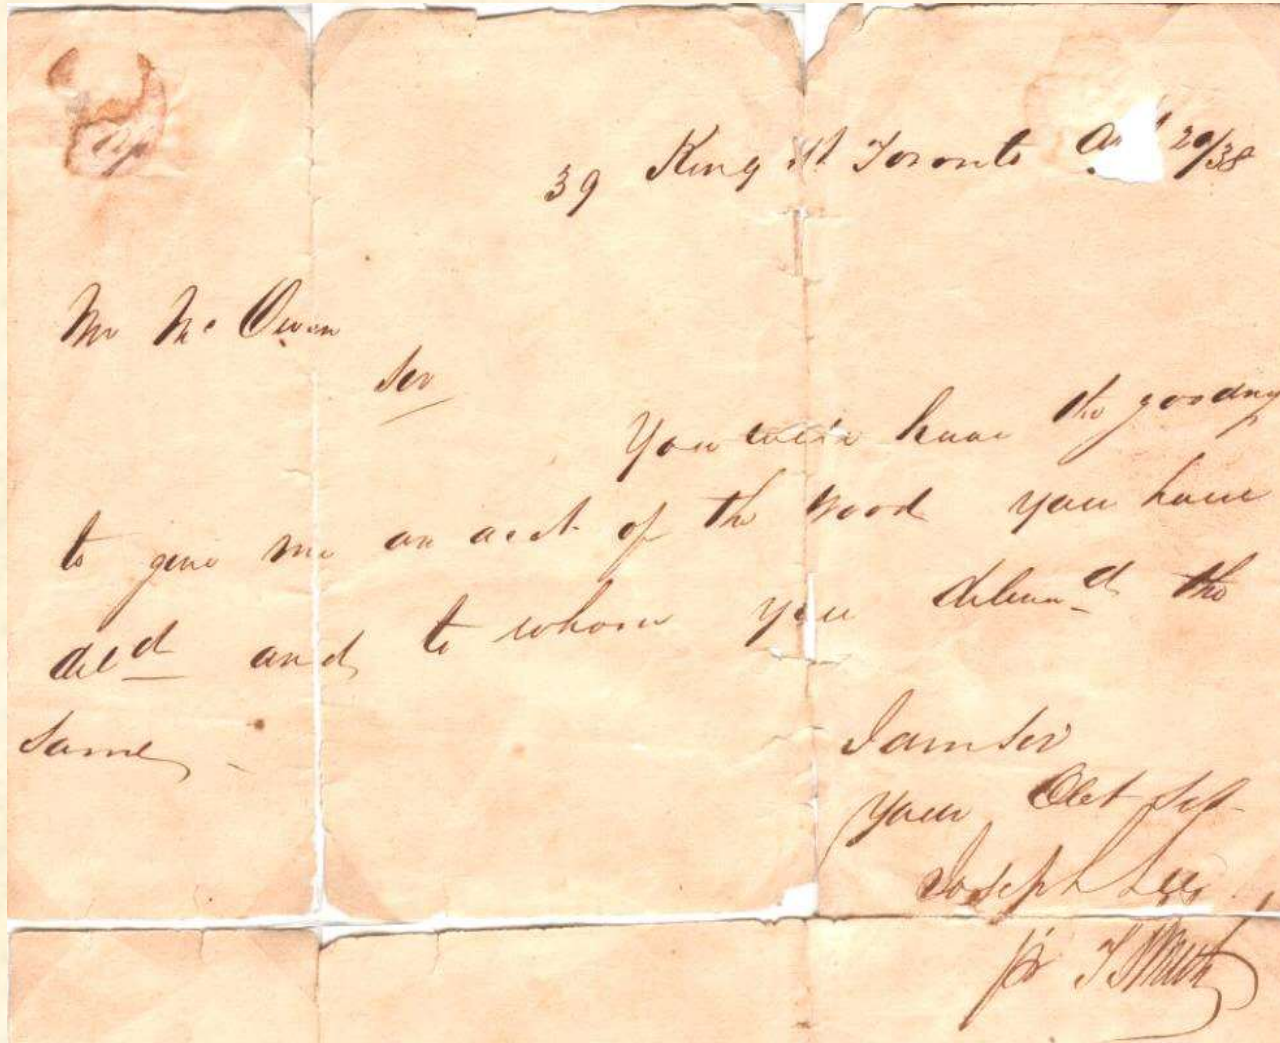 39 King St Toronto 20/38
Mr Mc Owen
Sir
You will have the goodness
to give me an acct of the wood you have
deld and to whom you delivd the
same
I am Sir
your Obt Sert
Joseph Lee
pr T Smith